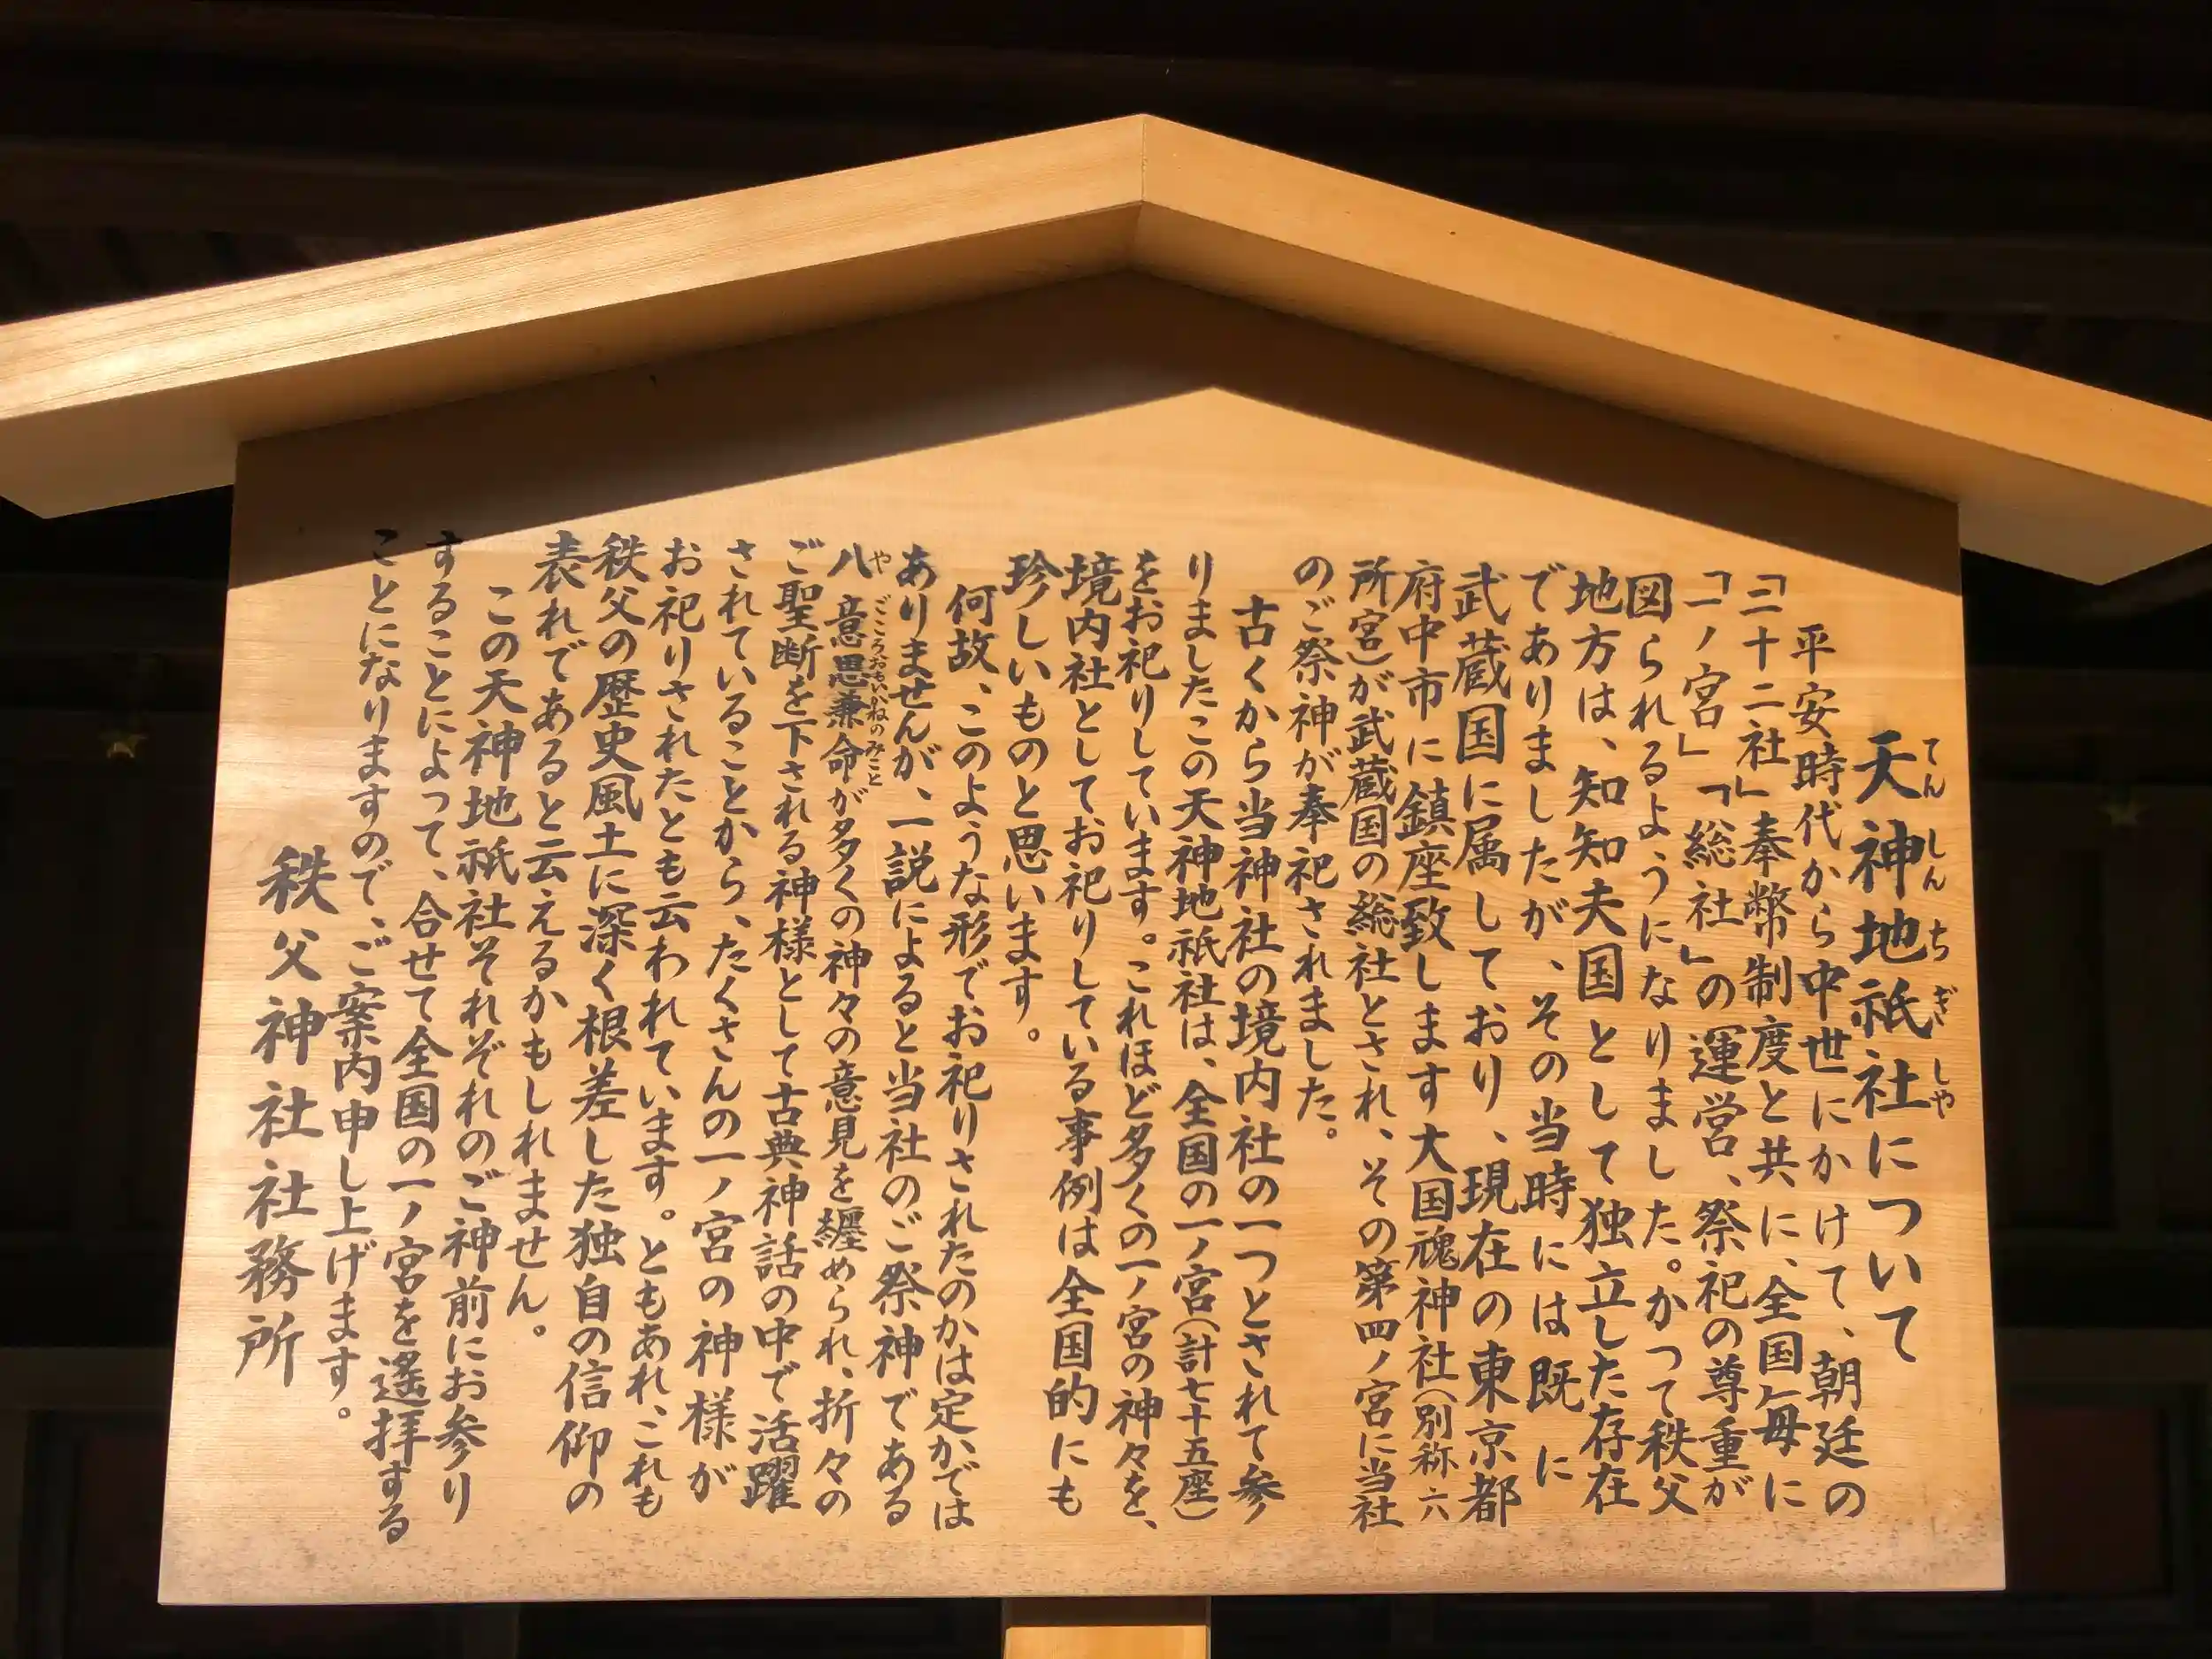 天神地祇社について
てん しん ち ぎ しゃ
平安時代から中世にかけて、朝廷の
「二十二社」奉幣制度と共に、全国毎に
「一ノ宮」「総社」の運営、祭祀の尊重が
図られるようになりました。かつて秩父
地方は、知知夫国として独立した存在
でありましたが、その当時には既に
武蔵国に属しており、現在の東京都
府中市に鎮座致します大国魂神社(別称六
所宮)が武蔵国の総社とされ、その第四ノ宮に当社
のご祭神が奉祀されました。
古くから当神社の境内社の一つとされて参
りましたこの天神地祇社は、全国の一ノ宮(計七十五座)
をお祀りしています。これほど多くの一ノ宮の神々を、
境内社としてお祀りしている事例は全国的にも
珍しいものと思います。
何故、このような形でお祀りされたのかは定かでは
ありませんが、一説によると当社のご祭神である
八意思兼命が多くの神々の意見を纏められ、折々の
や ごころおもいかねのみこと
ご聖断を下される神様として古典神話の中で活躍
されていることから、たくさんの一ノ宮の神様が
お祀りされたとも云われています。ともあれ、これも
秩父の歴史風土に深く根差した独自の信仰の
表れであると云えるかもしれません。
この天神地祇社それぞれのご神前にお参り
することによって、合せて全国の一ノ宮を遙拝する
ことになりますので、ご案内申し上げます。
秩父神社社務所